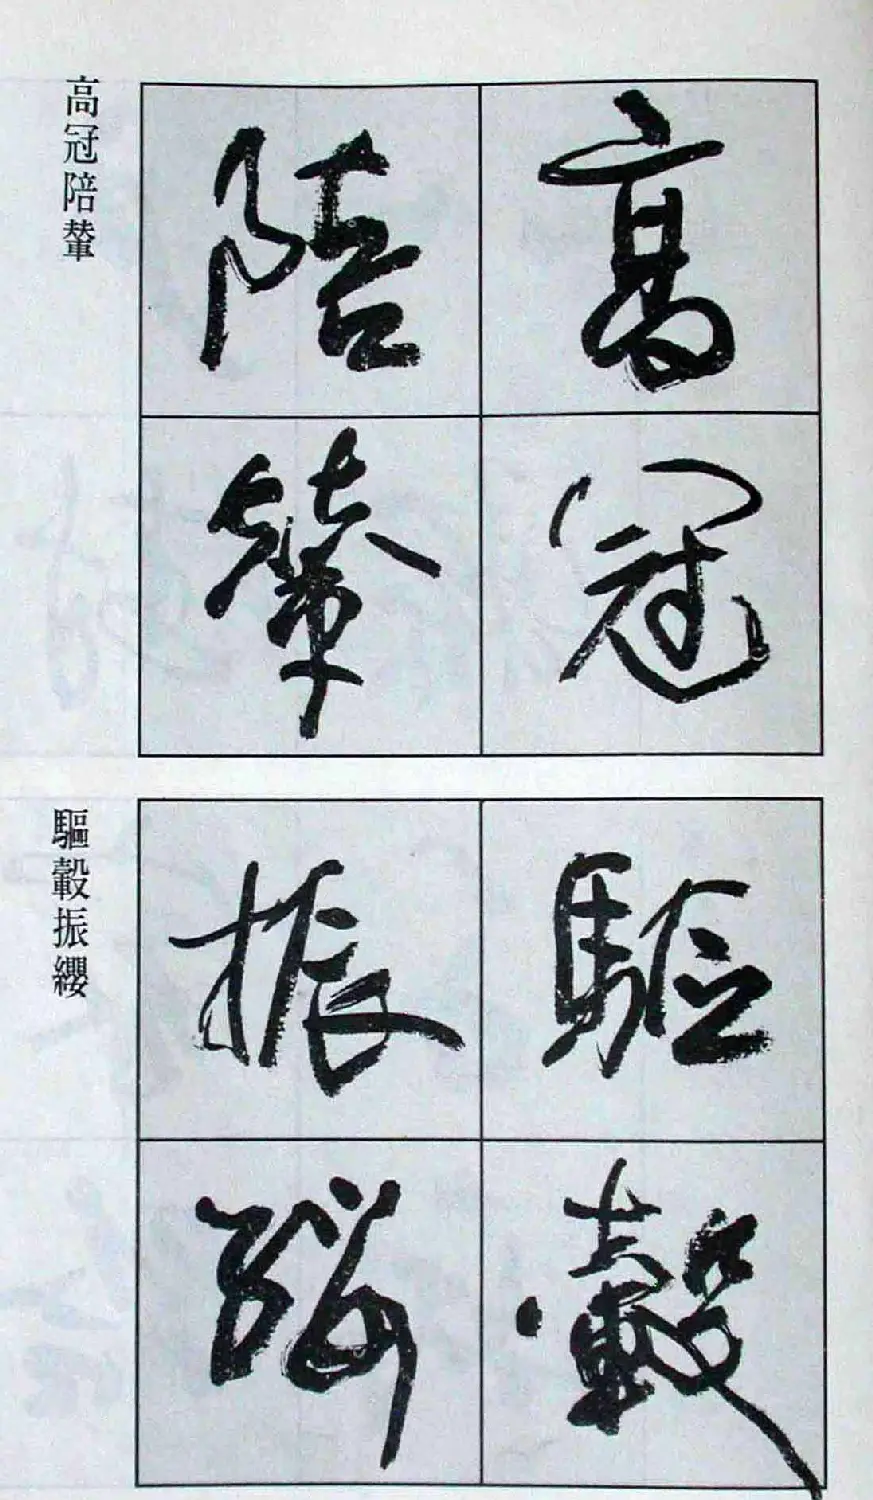 高冠
陪輦
高冠陪輦
驅轂
振纓
驅轂振纓